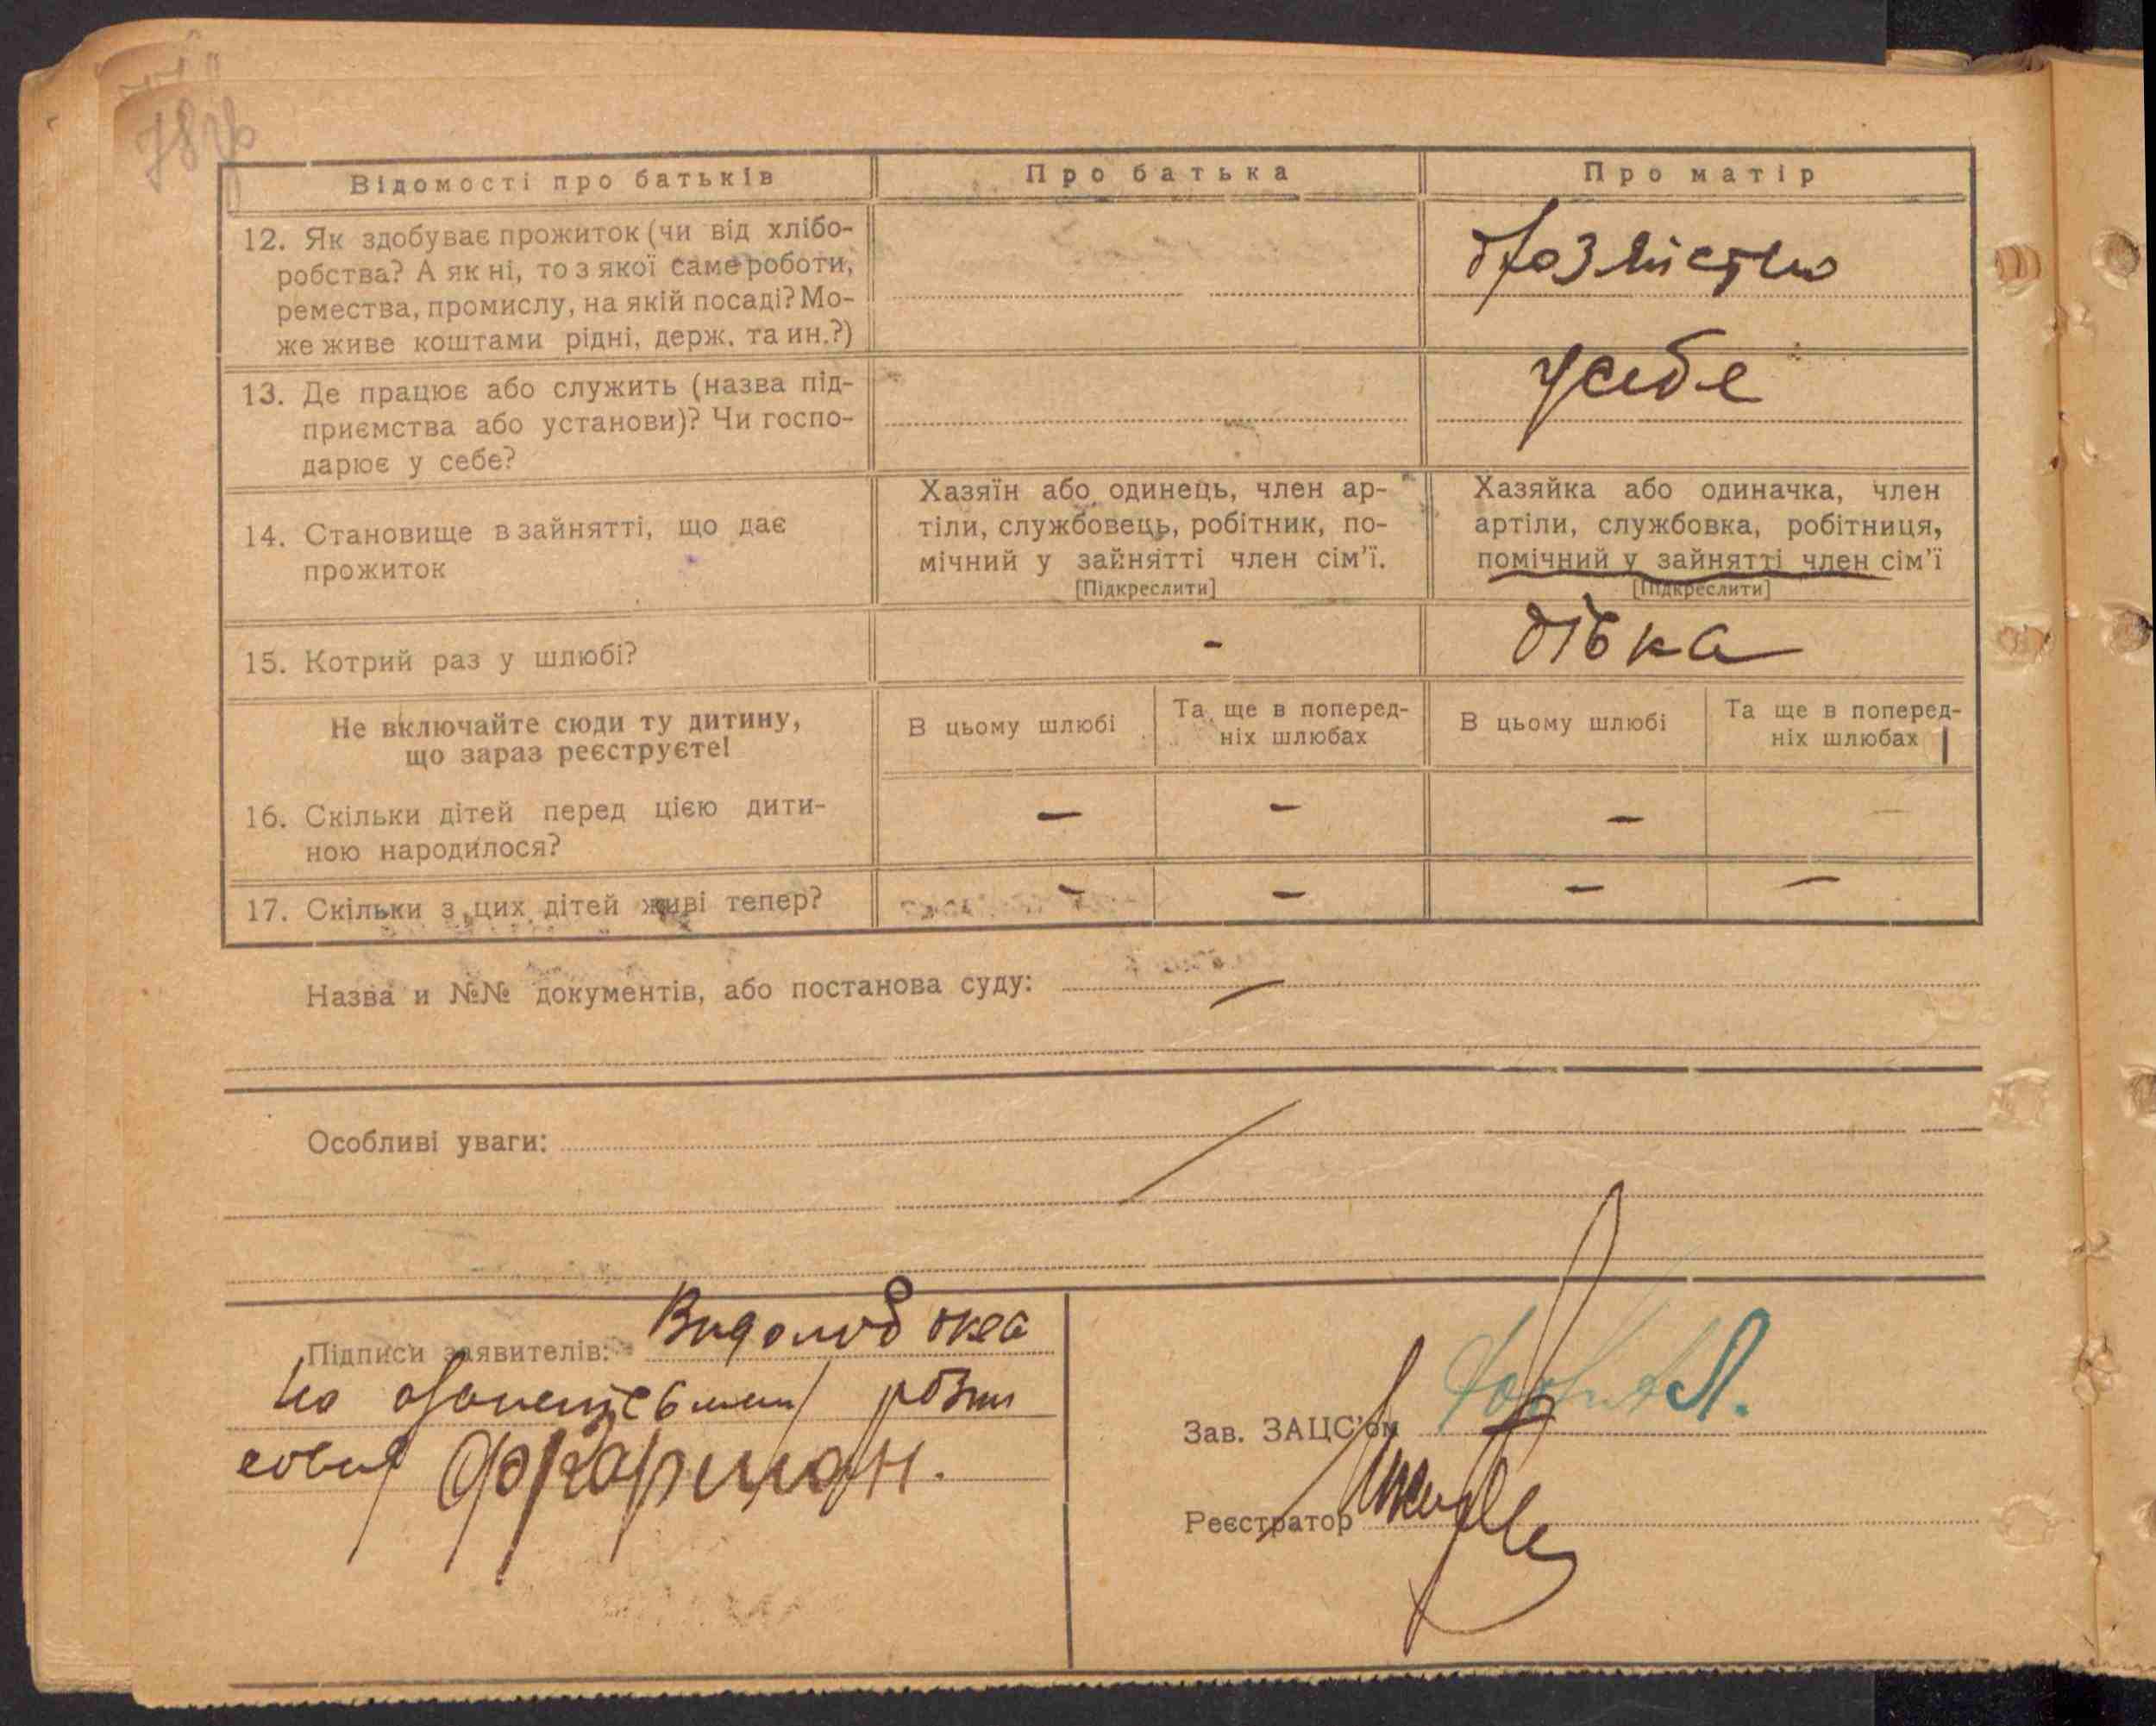 Відомості про батьків
Про батька
Про матір
12. Як здобуває прожиток (чи від хлібо-
робства? А як ні, то з якої саме роботи,
ремества, промислу, на якій посаді? Мо-
же живе коштами рідні, держ. та ин.?)
13. Де працює або служить (назва під-
приємства або установи)? Чи госпо-
дарює у себе?
у себе
14. Становище в зайнятті, що дає
прожиток
Хазяїн або одинець, член ар-
тіли, службовець, робітник, по-
мічний у зайнятті член сім'ї.
[Підкреслити]
Хазяйка або одиначка, член
артіли, службовка, робітниця,
помічний у зайнятті член сім'ї
[Підкреслити]
15. Котрий раз у шлюбі?
-
дівка
Не включайте сюди ту дитину,
що зараз реєструєте!
В цьому шлюбі
Та ще в поперед-
ніх шлюбах
В цьому шлюбі
Та ще в поперед-
ніх шлюбах
16. Скільки дітей перед цією дити-
ною народилося?
— — — —
17. Скільки з цих дітей живі тепер?
— — — —
Назва и №№ документів, або постанова суду: —
Особливі уваги:
Підписи заявителів:
Зав. ЗАЦС'ом
Реєстратор